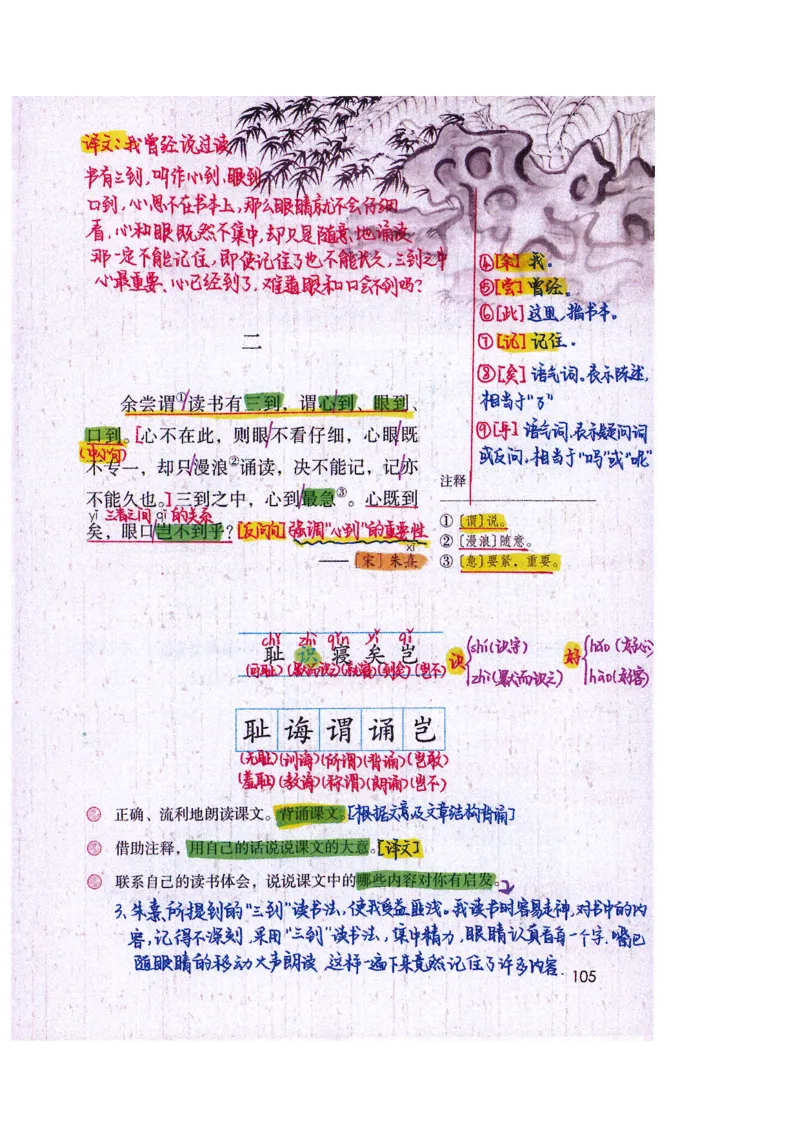 译文:我曾经说过读
书有三到,叫作心到、眼到
口到,心思不在书本上,那么眼睛就不会仔细
看,心和眼既然不集中,却只是随意地诵读
那一定不能记住,即使记住了也不能长久,三到之中
心最重要、心已经到了,难道眼和口会不到吗?
④[余]我。
⑤[尝]曾经。
⑥[此]这里,指书本。
⑦[记]记住.
⑧[矣]语气词.表示陈述,
相当于“了”
⑨[乎]语气词.表示疑问词
或反问,相当于“吗”或“呢”
二
余尝谓①读书有三到,谓心到、眼到、
口到。[心不在此,则眼不看仔细,心眼既
(中心句)
不专一,却只漫浪②诵读,决不能记,记亦
不能久也。]三到之中,心到最急③。心既到
yǐ 三者之间 qǐ 的关系
矣,眼口岂不到乎?[反问句](强调“心到”的重要性
xī
——〔宋〕朱熹
注释
①〔谓〕说。
②〔漫浪〕随意。
③〔急〕要紧,重要。
chǐ zhì qǐn yǐ qǐ
耻 识 寝 矣 岂
(默而识之)(岂不)
识 shí(识字)
zhì(默而识之)
好 hǎo(好心)
hào(好客)
耻 诲 谓 诵 岂
(无耻)(训诲)(所谓)(背诵)(岂敢)
(羞耻)(教诲)(称谓)(朗诵)(岂不)
正确、流利地朗读课文。背诵课文。[根据文意及文章结构背诵]
借助注释,用自己的话说说课文的大意。[译文]
联系自己的读书体会,说说课文中的哪些内容对你有启发。
3、朱熹所提到的“三到”读书法,使我受益匪浅。我读书时容易走神,对书中的内
容,记得不深刻,采用“三到”读书法,集中精力,眼睛认真看每一个字.嘴巴
随眼睛的移动大声朗读,这样一遍下来竟然记住了许多内容.
105